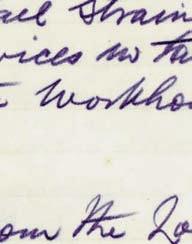 Strain
vices no ta
Workhou
om the Lo